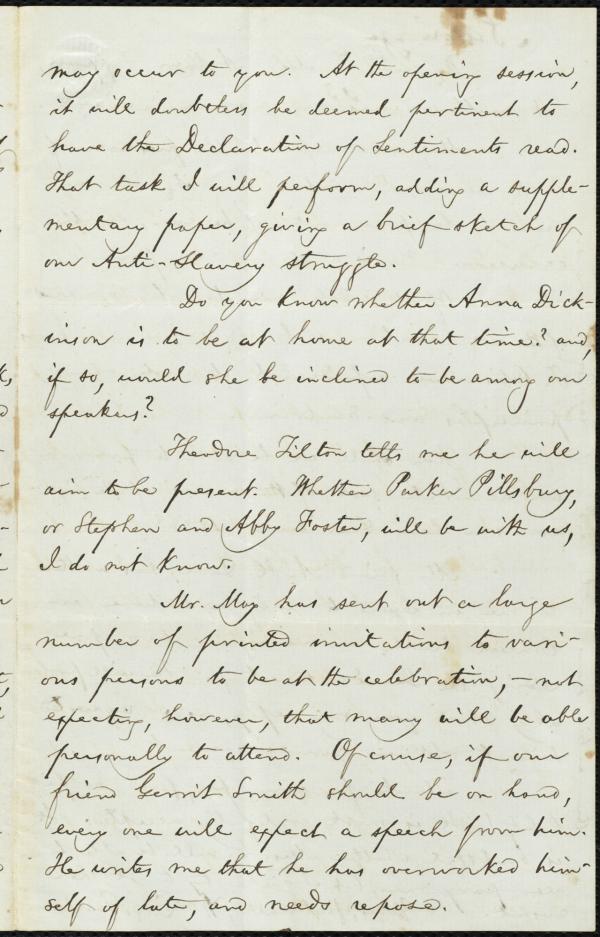 may occur to you. At the opening session,
it will doubtless be deemed pertinent to
have the Declaration of Sentiments read.
That task I will perform, adding a supple-
mentary paper, giving a brief sketch of
our Anti-Slavery struggle.
Do you know whether Anna Dick-
inson is to be at home at that time? and,
if so, would she be inclined to be among our
speakers?
Theodore Tilton tells me he will
aim to be present. Whether Parker Pillsbury,
or Stephen and Abby Foster, will be with us,
I do not know.
Mr. May has sent out a large
number of printed invitations to vari-
ous persons to be at the celebration, – not
expecting, however, that many will be able
personally to attend. Of course, if our
friend Gerrit Smith should be on hand,
every one will expect a speech from him.
He writes me that he has overworked him-
self of late, and needs repose.